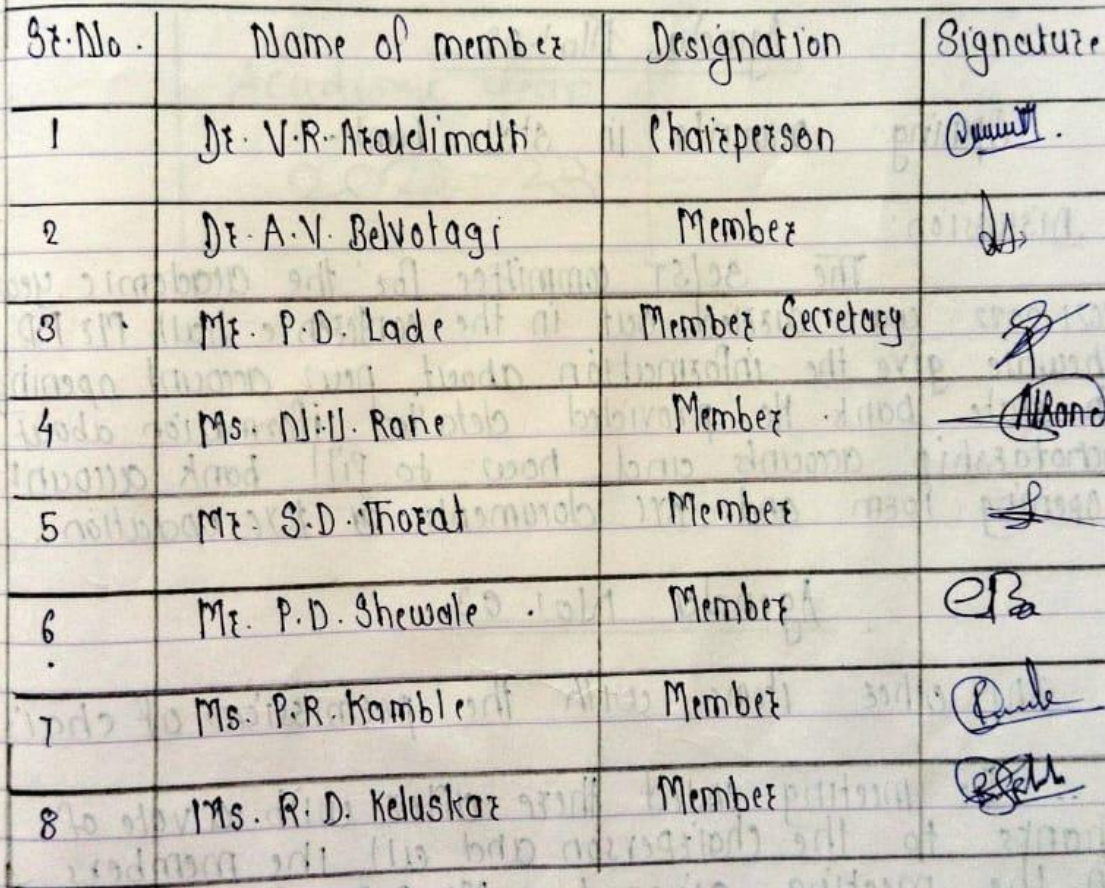 Sr.No. Name of member Designation Signature
1 Dr. V.R. Araldimath Chairperson
2 Dr. A.V. Belvotagi Member
3 Mr. P.D. Lade Member Secretary
4 Ms. N.U. Rane Member NRane
5 Mr. S.D. Thorat Member
6 Mr. P.D. Shewale Member
7 Ms. P.R. Kamble Member
8 Ms. R.D. Keluskar Member